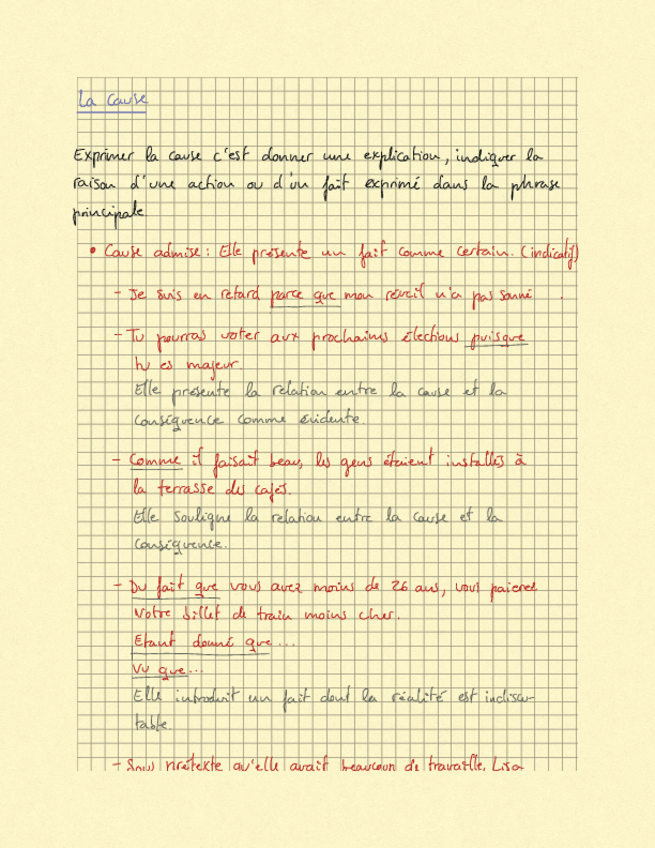 La Cause
Exprimer la cause c'est donner une explication, indiquer la
raison d'une action ou d'un fait exprimé dans la phrase
principale
• Cause admise : Elle présente un fait comme certain. (indicatif)
- Je suis en retard parce que mon réveil n'a pas sonné
- Tu pourras voter aux prochaines élections puisque
tu es majeur
Elle présente la relation entre la cause et la
conséquence comme évidente.
- Comme il faisait beau, les gens étaient installés à
la terrasse des cafés.
Elle souligne la relation entre la cause et la
conséquence.
- Du fait que vous avez moins de 26 ans, vous paierez
votre billet de train moins cher.
Etant donné que...
Vu que...
Elle introduit un fait dont la réalité est indiscu-
table.
- Sous prétexte qu'elle avait beaucoup de travaille, Lisa